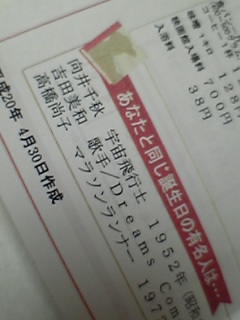 コーヒー 1杯
味噌 1キロ 128
映画館入場料 700円
入浴料 38円
あなたと同じ誕生日の有名人は…
向井千秋 宇宙飛行士 1952年(昭和
吉田美和 歌手/Dreams Com
高橋尚子 マラソンランナー 197
平成20年 4月30日作成